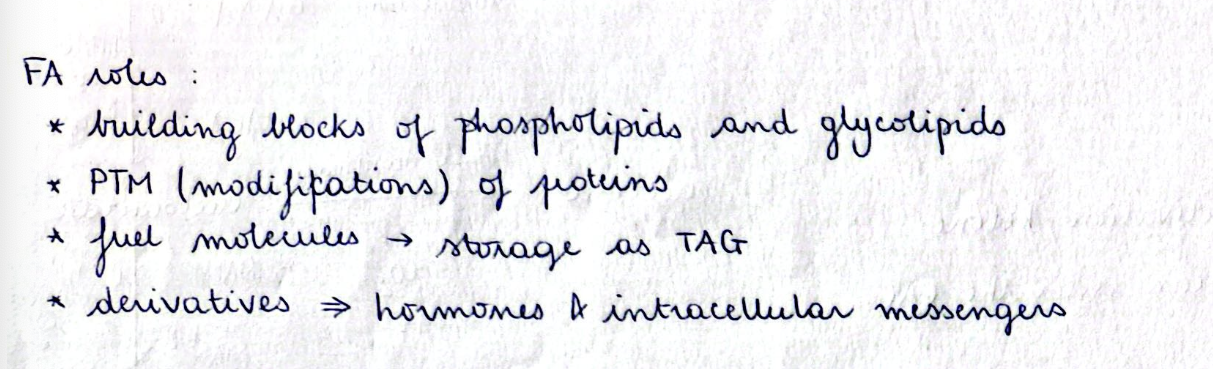 FA roles :
* building blocks of phospholipids and glycolipids
* PTM (modifications) of proteins
* fuel molecules → storage as TAG
* derivatives ⇒ hormones & intracellular messengers